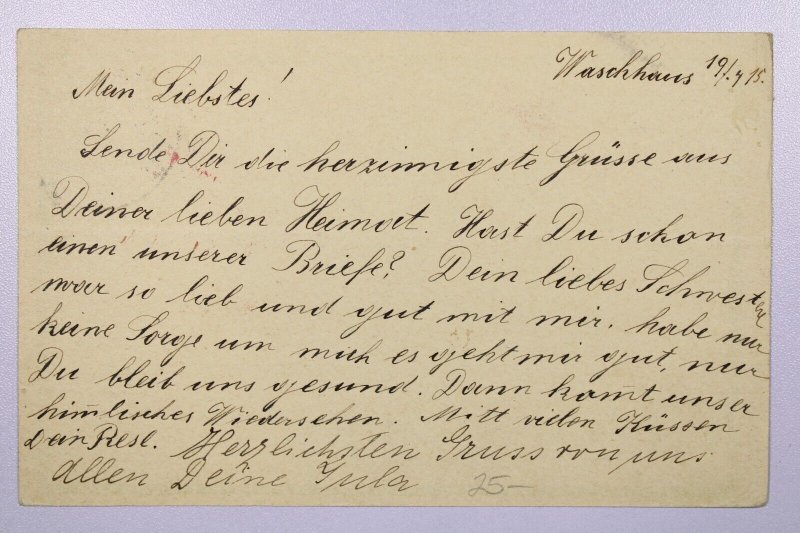 Waschhaus 19/.7 15.
Mein Liebstes!
Sende Dir die herzinnigste Grüsse aus
Deiner lieben Heimat. Hast Du schon
einen unserer Briefe? Dein liebes Schwesterl
war so lieb und gut mit mir. habe nur
keine Sorge um mich es geht mir gut, nur
Du bleib uns gesund. Dann kom̄t unser
him̄lisches Wiedersehen. Mitt vielen Küssen
Dein Resl. Herzlichsten Gruss von uns
allen Deine Jula
25-